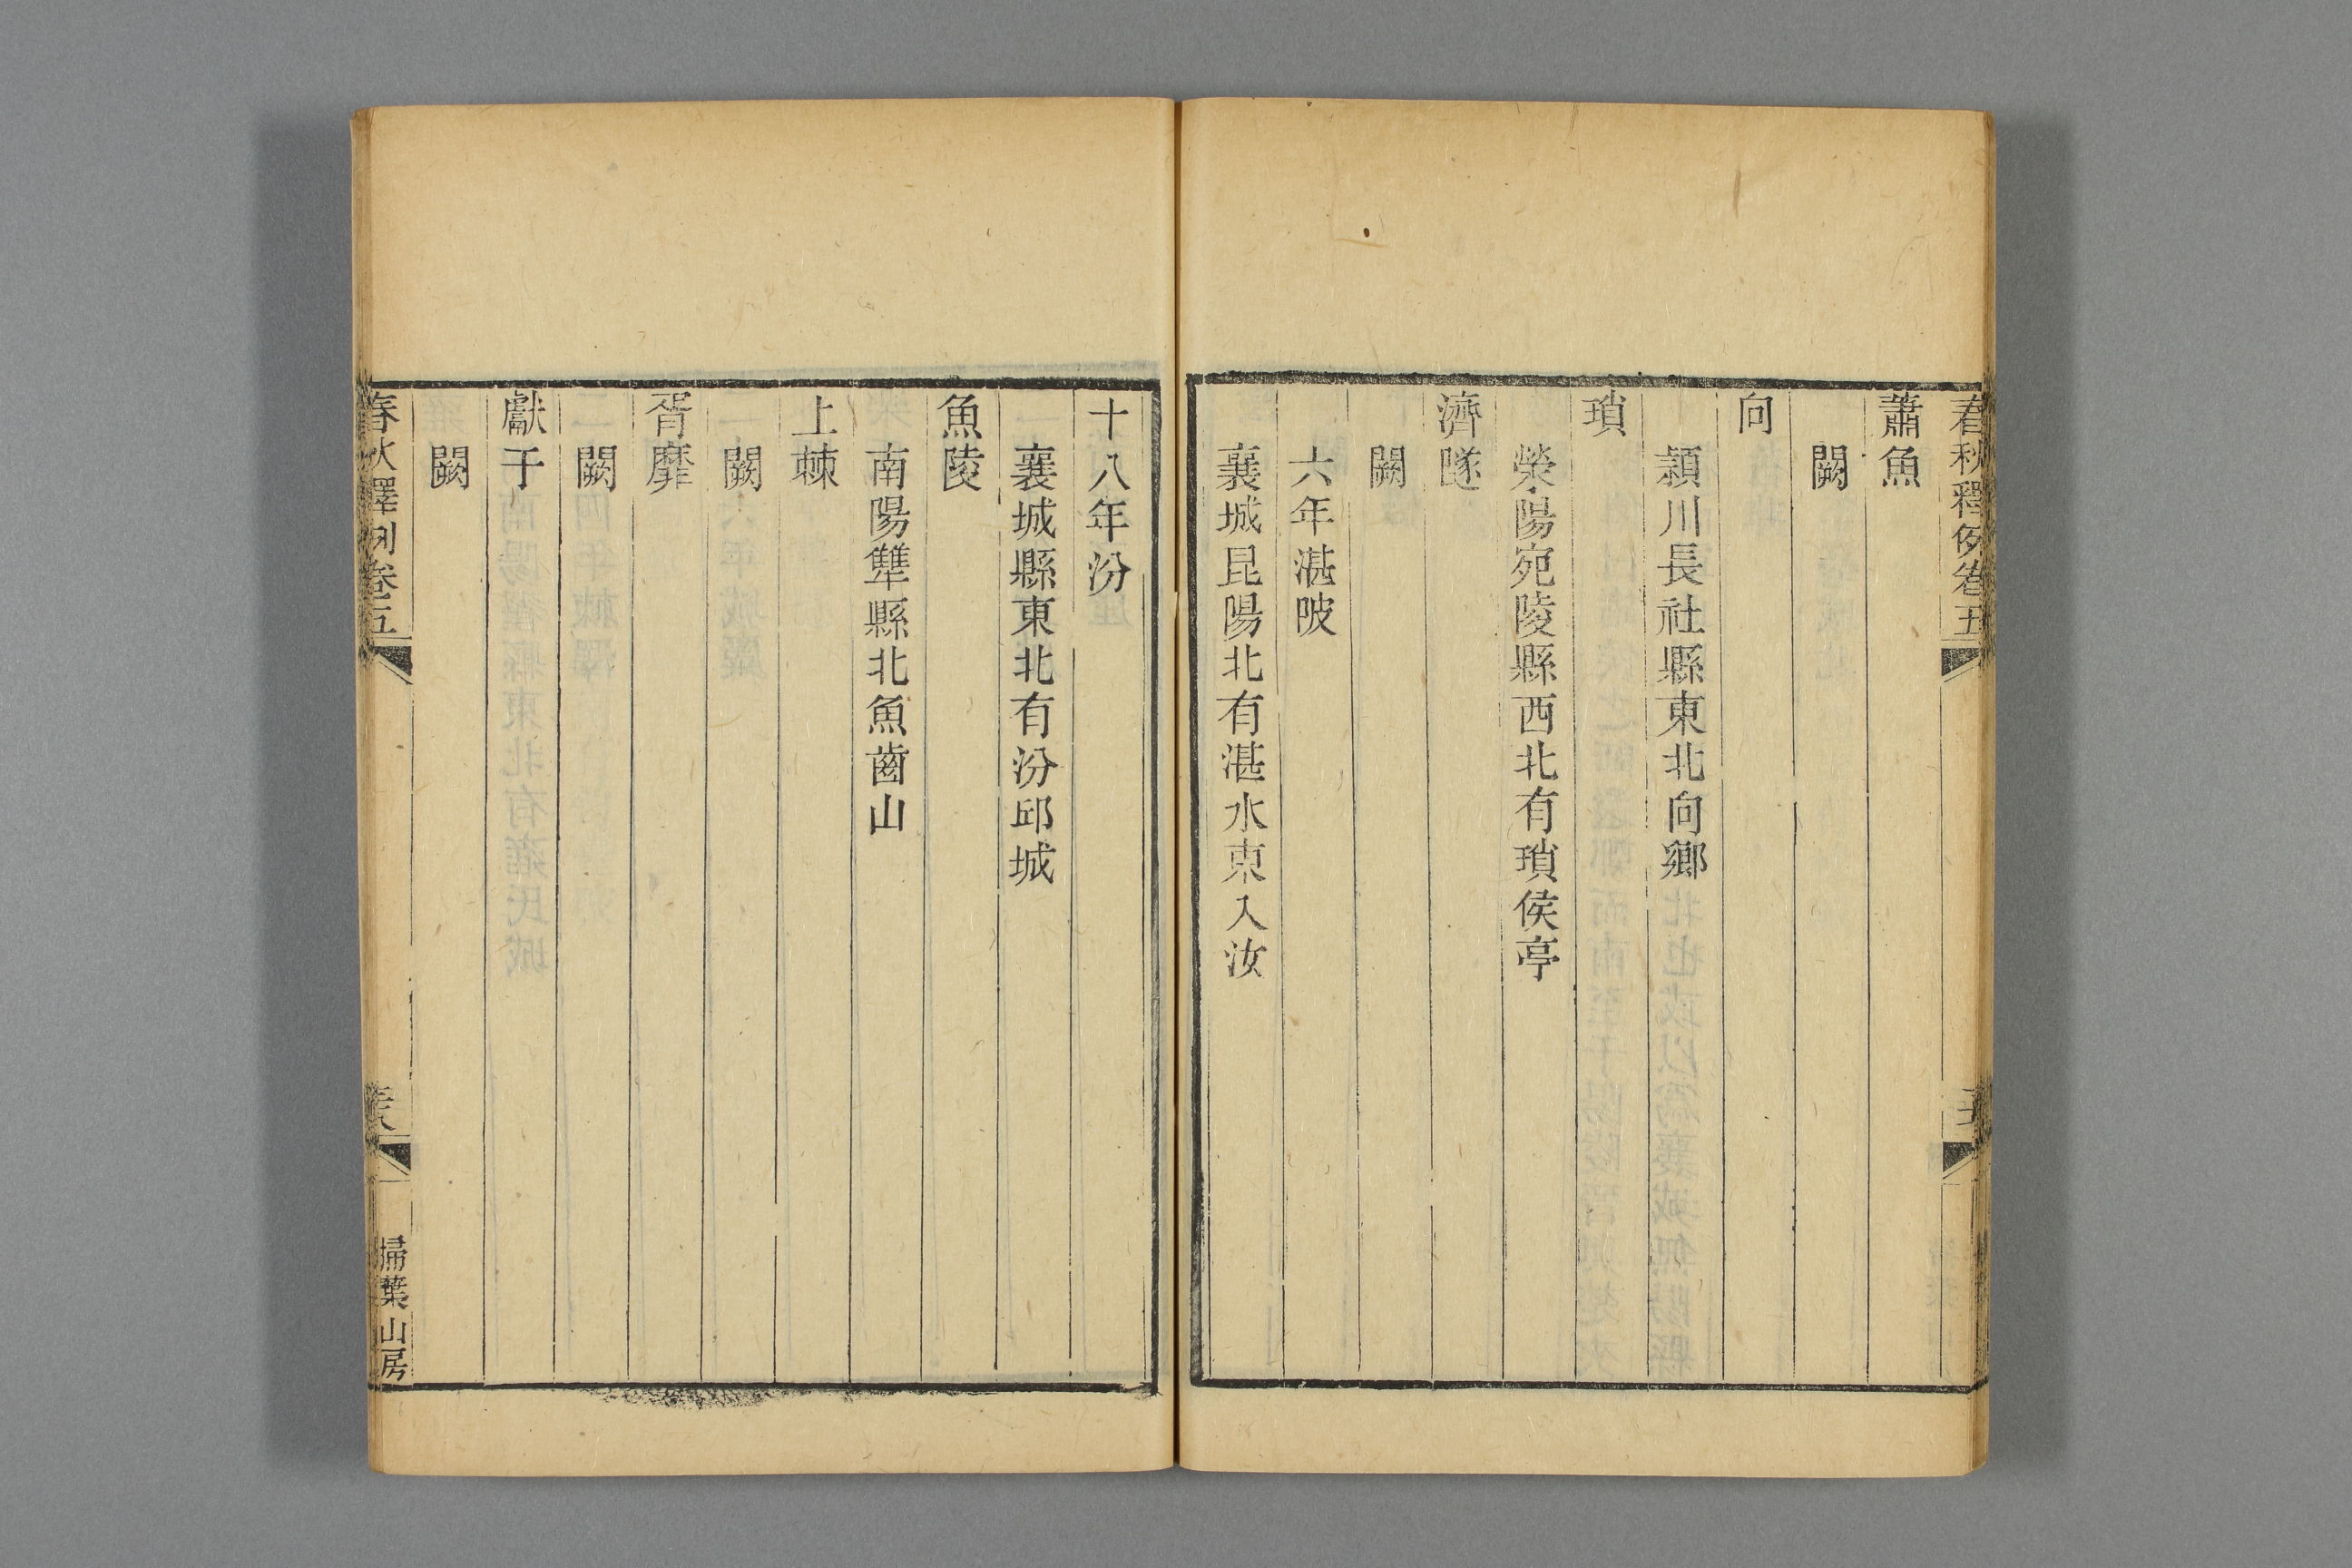 春秋釋例卷五
蕭魚
闕
向
潁川長社縣東北向鄉
瑣
滎陽宛陵縣西北有瑣侯亭
濟隧
闕
十六年湛阪
襄城昆陽北有湛水東入汝
十八年汾
襄城縣東北有汾邱城
魚陵
南陽犨縣北魚齒山
上棘
闕
胥靡
闕
獻于
闕
春秋釋例卷五
掃葉山房